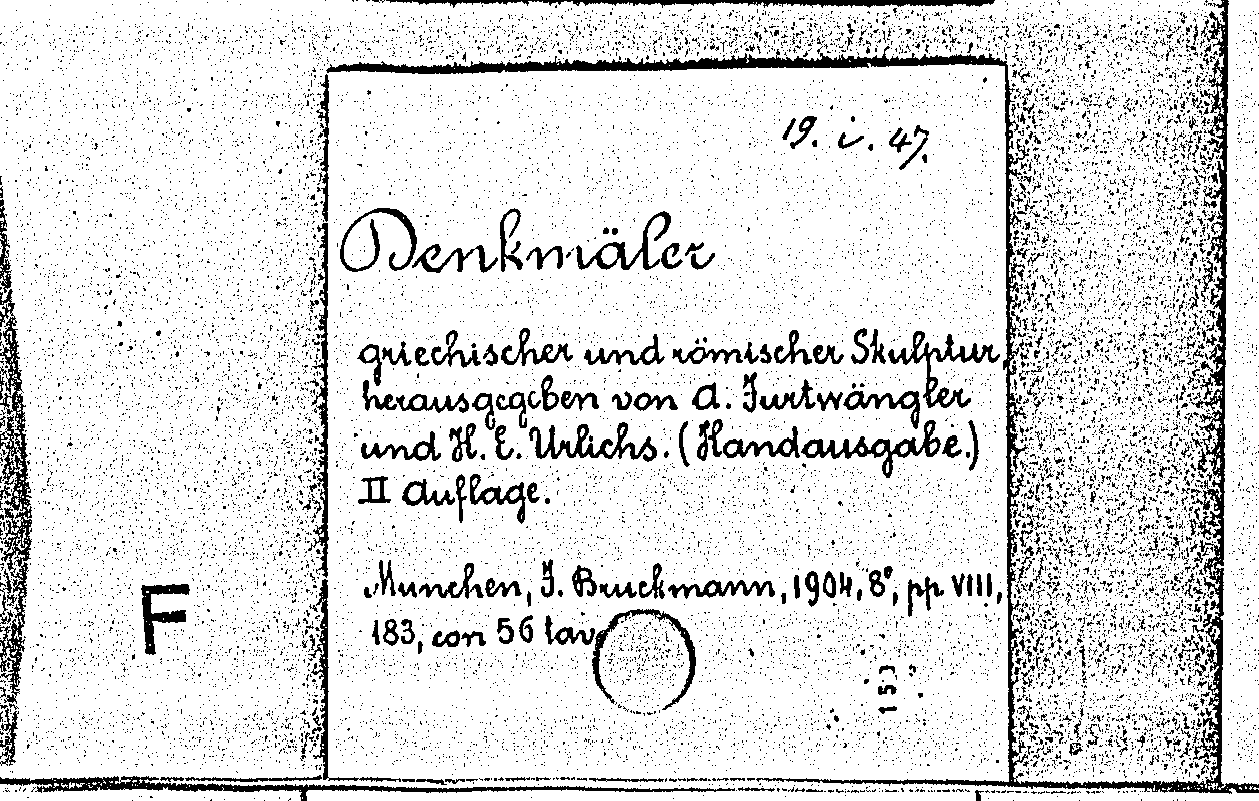 19. i. 47.
Denkmäler
griechischer und römischer Skulptur,
herausgegeben von A. Furtwängler
und H. E. Urlichs. (Handausgabe.)
II Auflage.
Munchen, F. Bruckmann, 1904, 8°, pp VIII,
183, con 56 tav
F
153